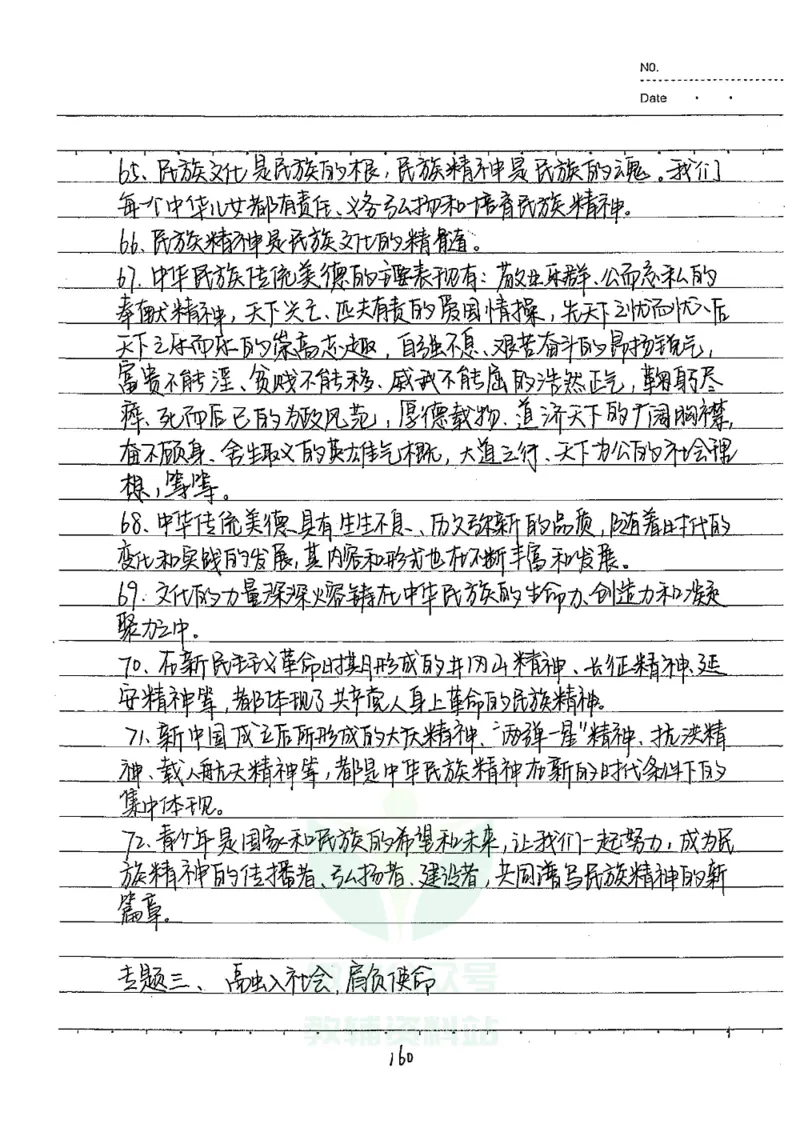 NO.
Date
65、民族文化是民族的根，民族精神是民族的魂。我们
每个中华儿女都有责任、义务弘扬和培育民族精神。
66、民族精神是民族文化的精髓。
67、中华民族传统美德的主要表现有：敬业乐群、公而忘私的
奉献精神，天下兴亡、匹夫有责的爱国情操，先天下之忧而忧、后
天下之乐而乐的崇高志趣，自强不息、艰苦奋斗的昂扬锐气，
富贵不能淫、贫贱不能移、威武不能屈的浩然正气，鞠躬尽
瘁、死而后已的为政风范，厚德载物、道济天下的广阔胸襟，
奋不顾身、舍生取义的英雄气概，大道之行、天下为公的社会理
想，等等。
68、中华传统美德具有生生不息、历久弥新的品质，随着时代的
变化和实践的发展，其内容和形式也在不断丰富和发展。
69、文化的力量深深熔铸在中华民族的生命力、创造力和凝
聚力之中。
70、在新民主主义革命时期形成的井冈山精神、长征精神、延
安精神等，都体现了共产党人身上革命的民族精神。
71、新中国成立后所形成的大庆精神、“两弹一星”精神、抗洪精
神、载人航天精神等，都是中华民族精神在新的时代条件下的
集中体现。
72、青少年是国家和民族的希望和未来，让我们一起努力，成为民
族精神的传播者、弘扬者、建设者，共同谱写民族精神的新
篇章。
专题三、融入社会，肩负使命
教辅资料站
160